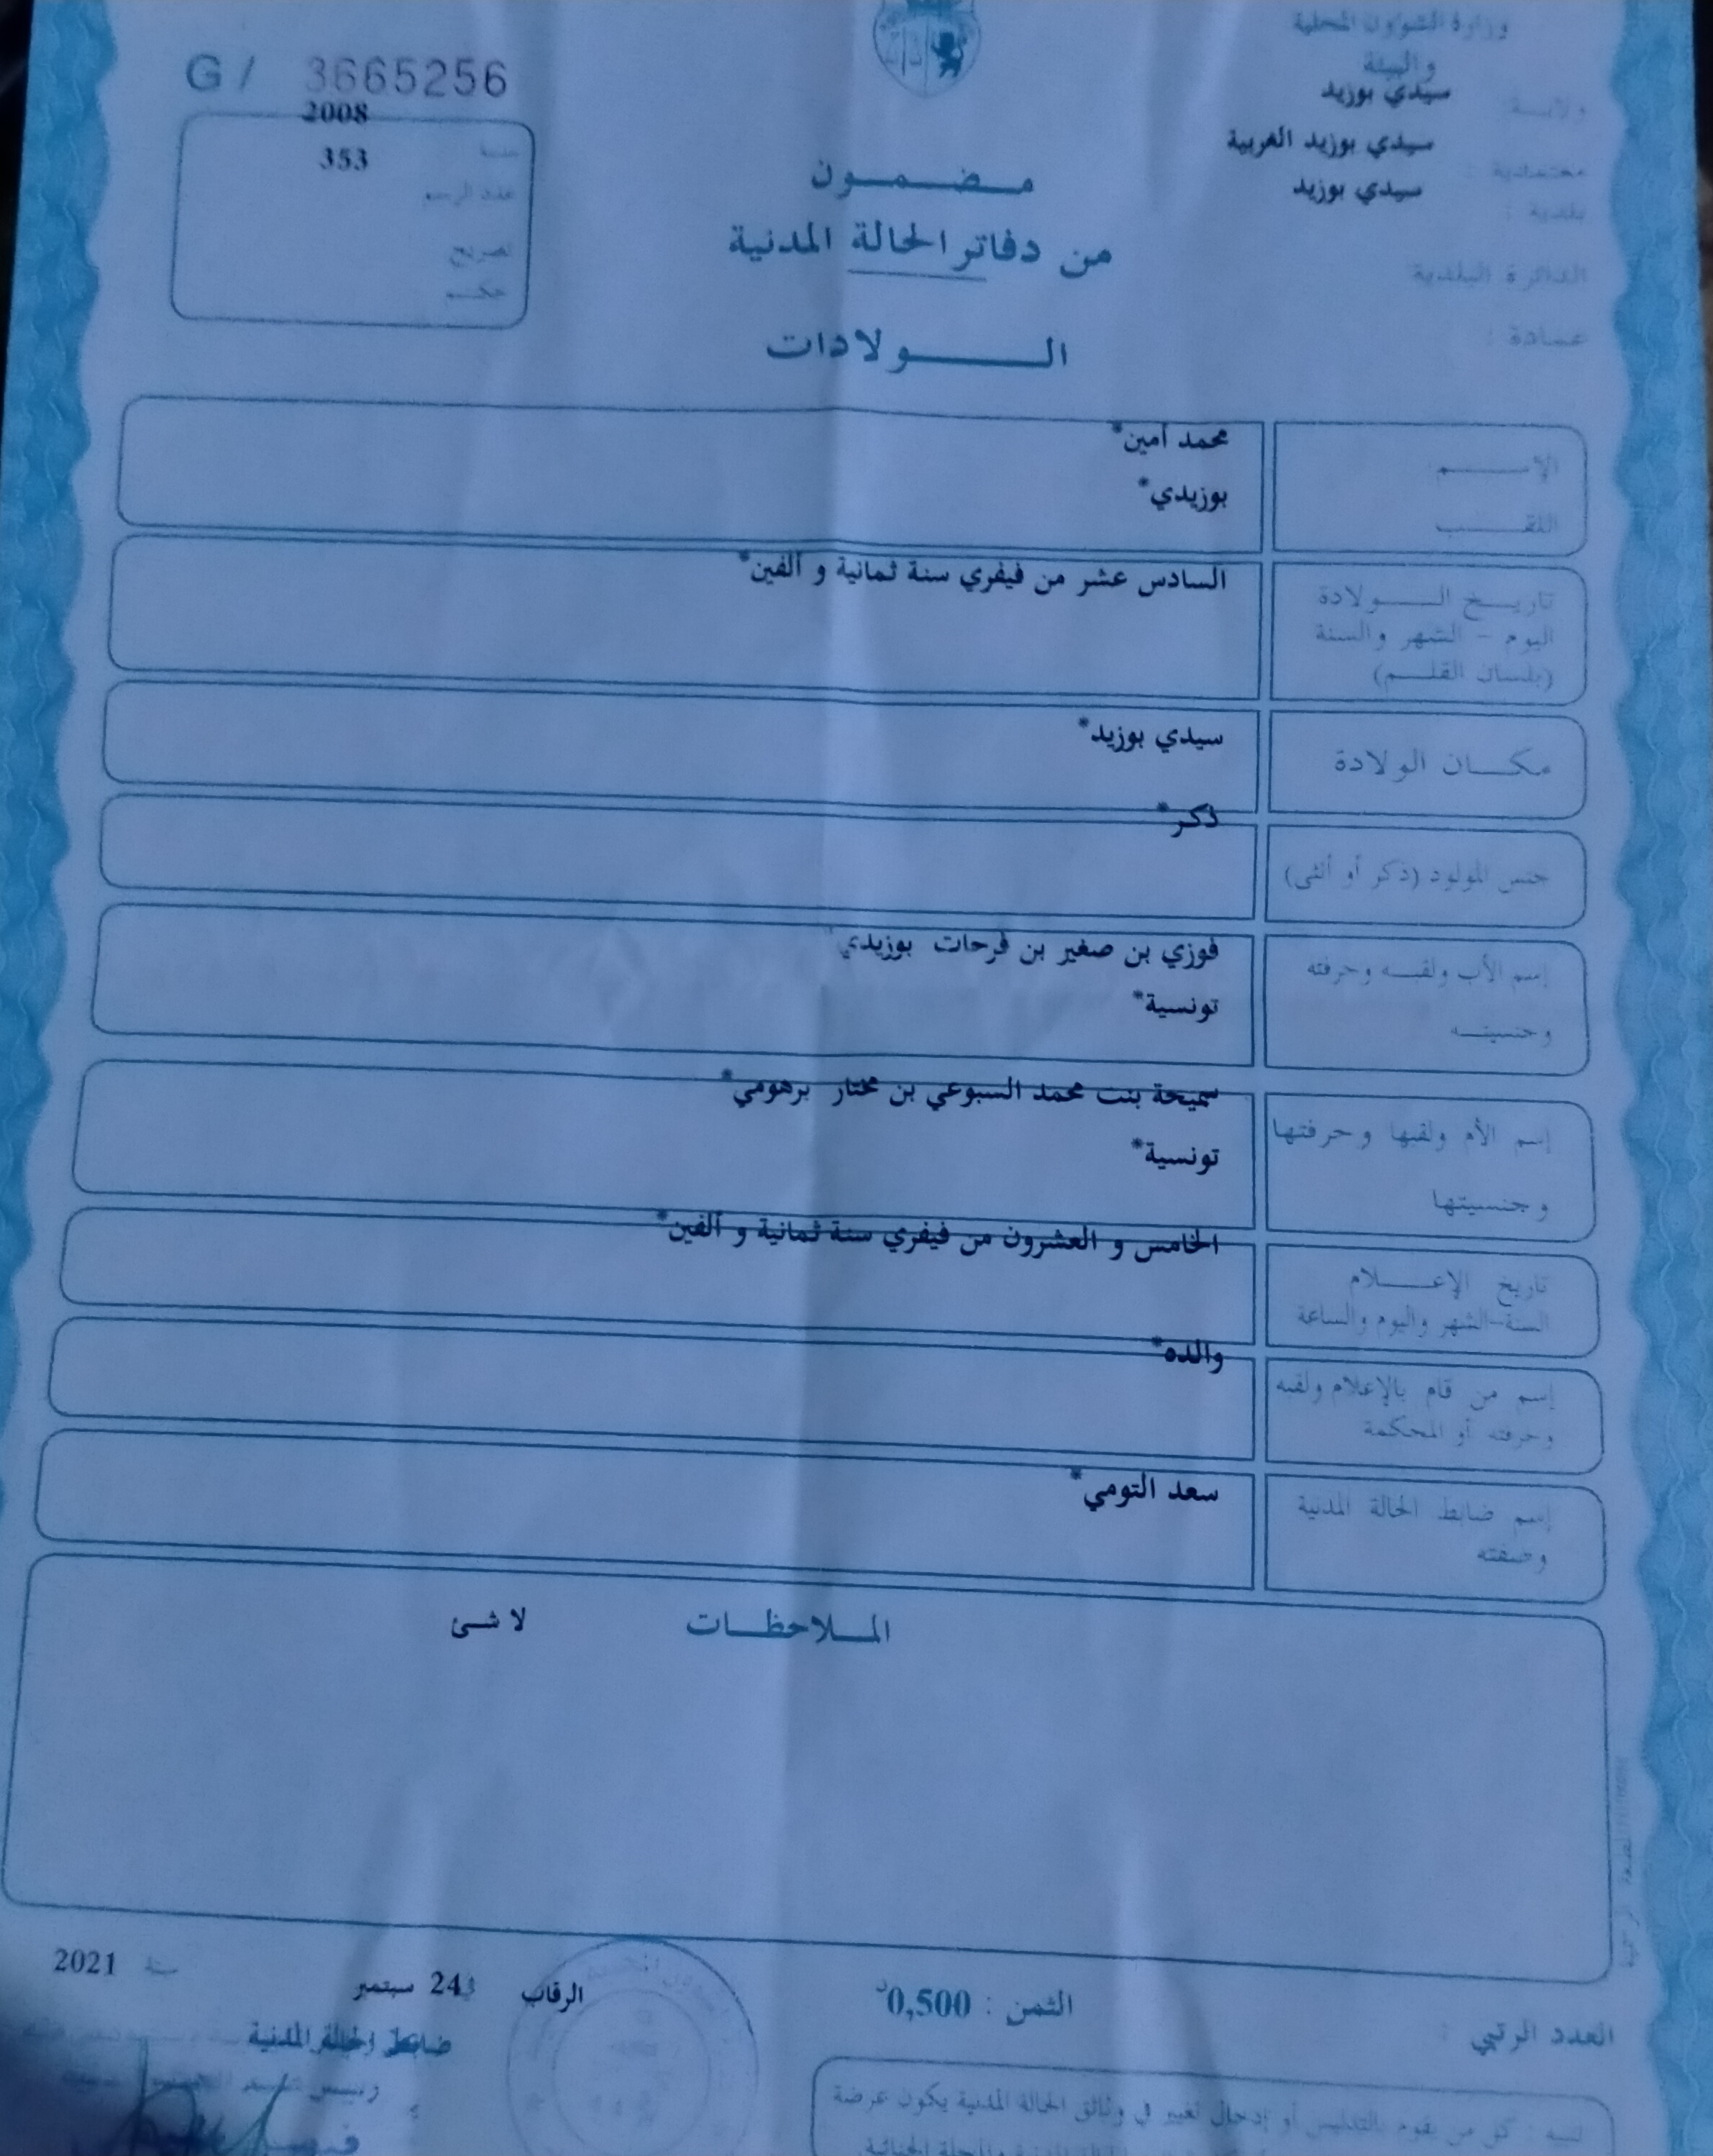 وزارة الشؤون المحلية
والبيئة
ولايـــة : سيدي بوزيد
معتمدية : سيدي بوزيد الغربية
بلدية : سيدي بوزيد
الدائرة البلدية
عمادة :
G/ 3665256
2008
سنة 353
عدد الرسم
تصريح
حكـــم
مـــضـــمـــون
من دفاتر الحالة المدنية
الـــــولادات
الإســـــم محمد أمين*
اللقـــــب بوزيدي*
تاريـــخ الـــــولادة السادس عشر من فيفري سنة ثمانية و ألفين*
اليوم - الشهر والسنة
(بلسان القلـــم)
مكـــان الولادة سيدي بوزيد*
جنس المولود (ذكر أو أنثى) ذكر*
إسم الأب ولقبـــه وحرفته فوزي بن صغير بن فرحات بوزيدي
وجنسيتـــه تونسية*
إسم الأم ولقبها وحرفتها سميحة بنت محمد السبوعي بن مختار برهومي*
وجنسيتها تونسية*
تاريخ الإعـــــلام الخامس و العشرون من فيفري سنة ثمانية و ألفين*
السنة-الشهر واليوم والساعة
إسم من قام بالإعلام ولقبه والده*
وحرفته أو المحكمة
إسم ضابط الحالة المدنية سعد التومي*
وصفته
المـــلاحظـــات لا شئ
الرقاب 24 سبتمبر سنة 2021
العدد الرتبي : الثمن : 0,500د
ضابط الحالة المدنية
تنبيه : كل من يقوم بالتدليس أو إدخال تغيير في وثائق الحالة المدنية يكون عرضة